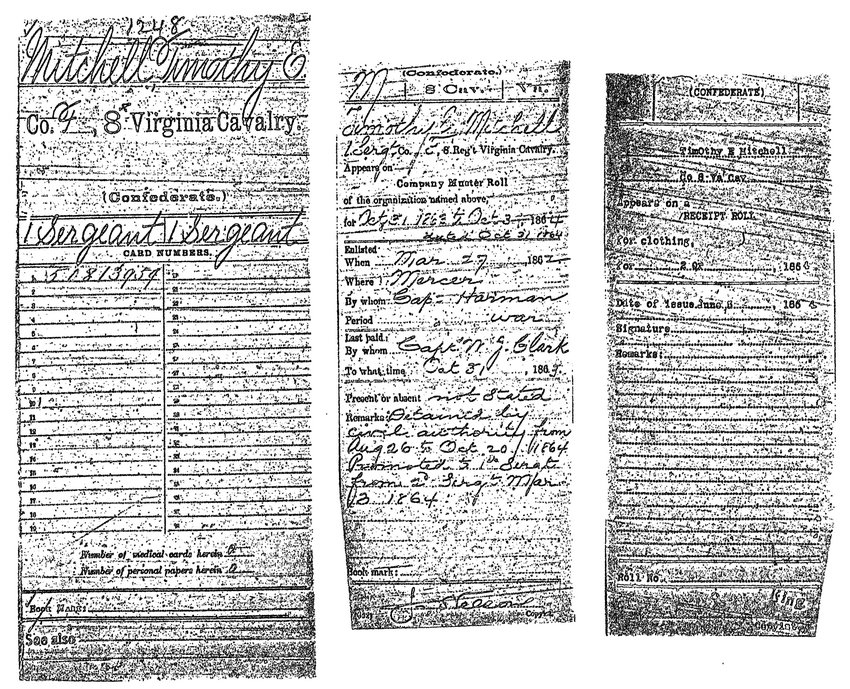 1248
Mitchell, Timothy E.
Co. F, 8 Virginia Cavalry.
(Confederate.)
1 Sergeant 1 Sergeant
CARD NUMBERS.
Number of medical cards herein 0
Number of personal papers herein 0
Book Mark:
See also
(Confederate.)
M 8 Cav. Va.
Timothy E. Mitchell
1 Serg, Co. 8 Reg't Virginia Cavalry.
Appears on
Company Muster Roll
of the organization named above,
for Oct 31, 1863 to Oct 31, 1864
dated Oct 31, 1864
Enlisted
When Mar 27, 1862
Where Mercer
By whom Cap Harman
Period war
Last paid:
By whom Capt W. J. Clark
To what time Oct 31, 186
Present or absent not stated
Remarks: Detained by
civil authority from
Aug 26 to Oct 20 1864
Promoted to 1st Sergt
from 2d Sergt Mar
13 1864
Book mark:
Copyist.
(CONFEDERATE)
Timothy E Mitchell
Co 8 Va Cav
Appears on a
RECEIPT ROLL
for clothing,
for 2 Qr 186
Date of issue June 186
Signature
Remarks:
Roll No.
King
Copyist.